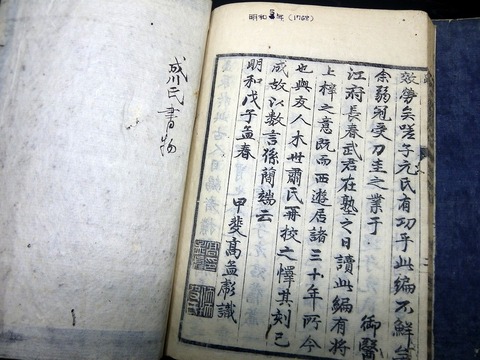 明和5年(1768)
效勞矣嗟子元氏有功乎此編不鮮
余弱冠受刀圭之業于 御醫
江府長春武君在塾之日讀此編有將
上梓之意既而西遊居諸三十年所今
也與友人木世肅氏再校之懌其刻已
成故以數言係簡端云
明和戊子孟春
甲斐高孟彪識
成川氏書物